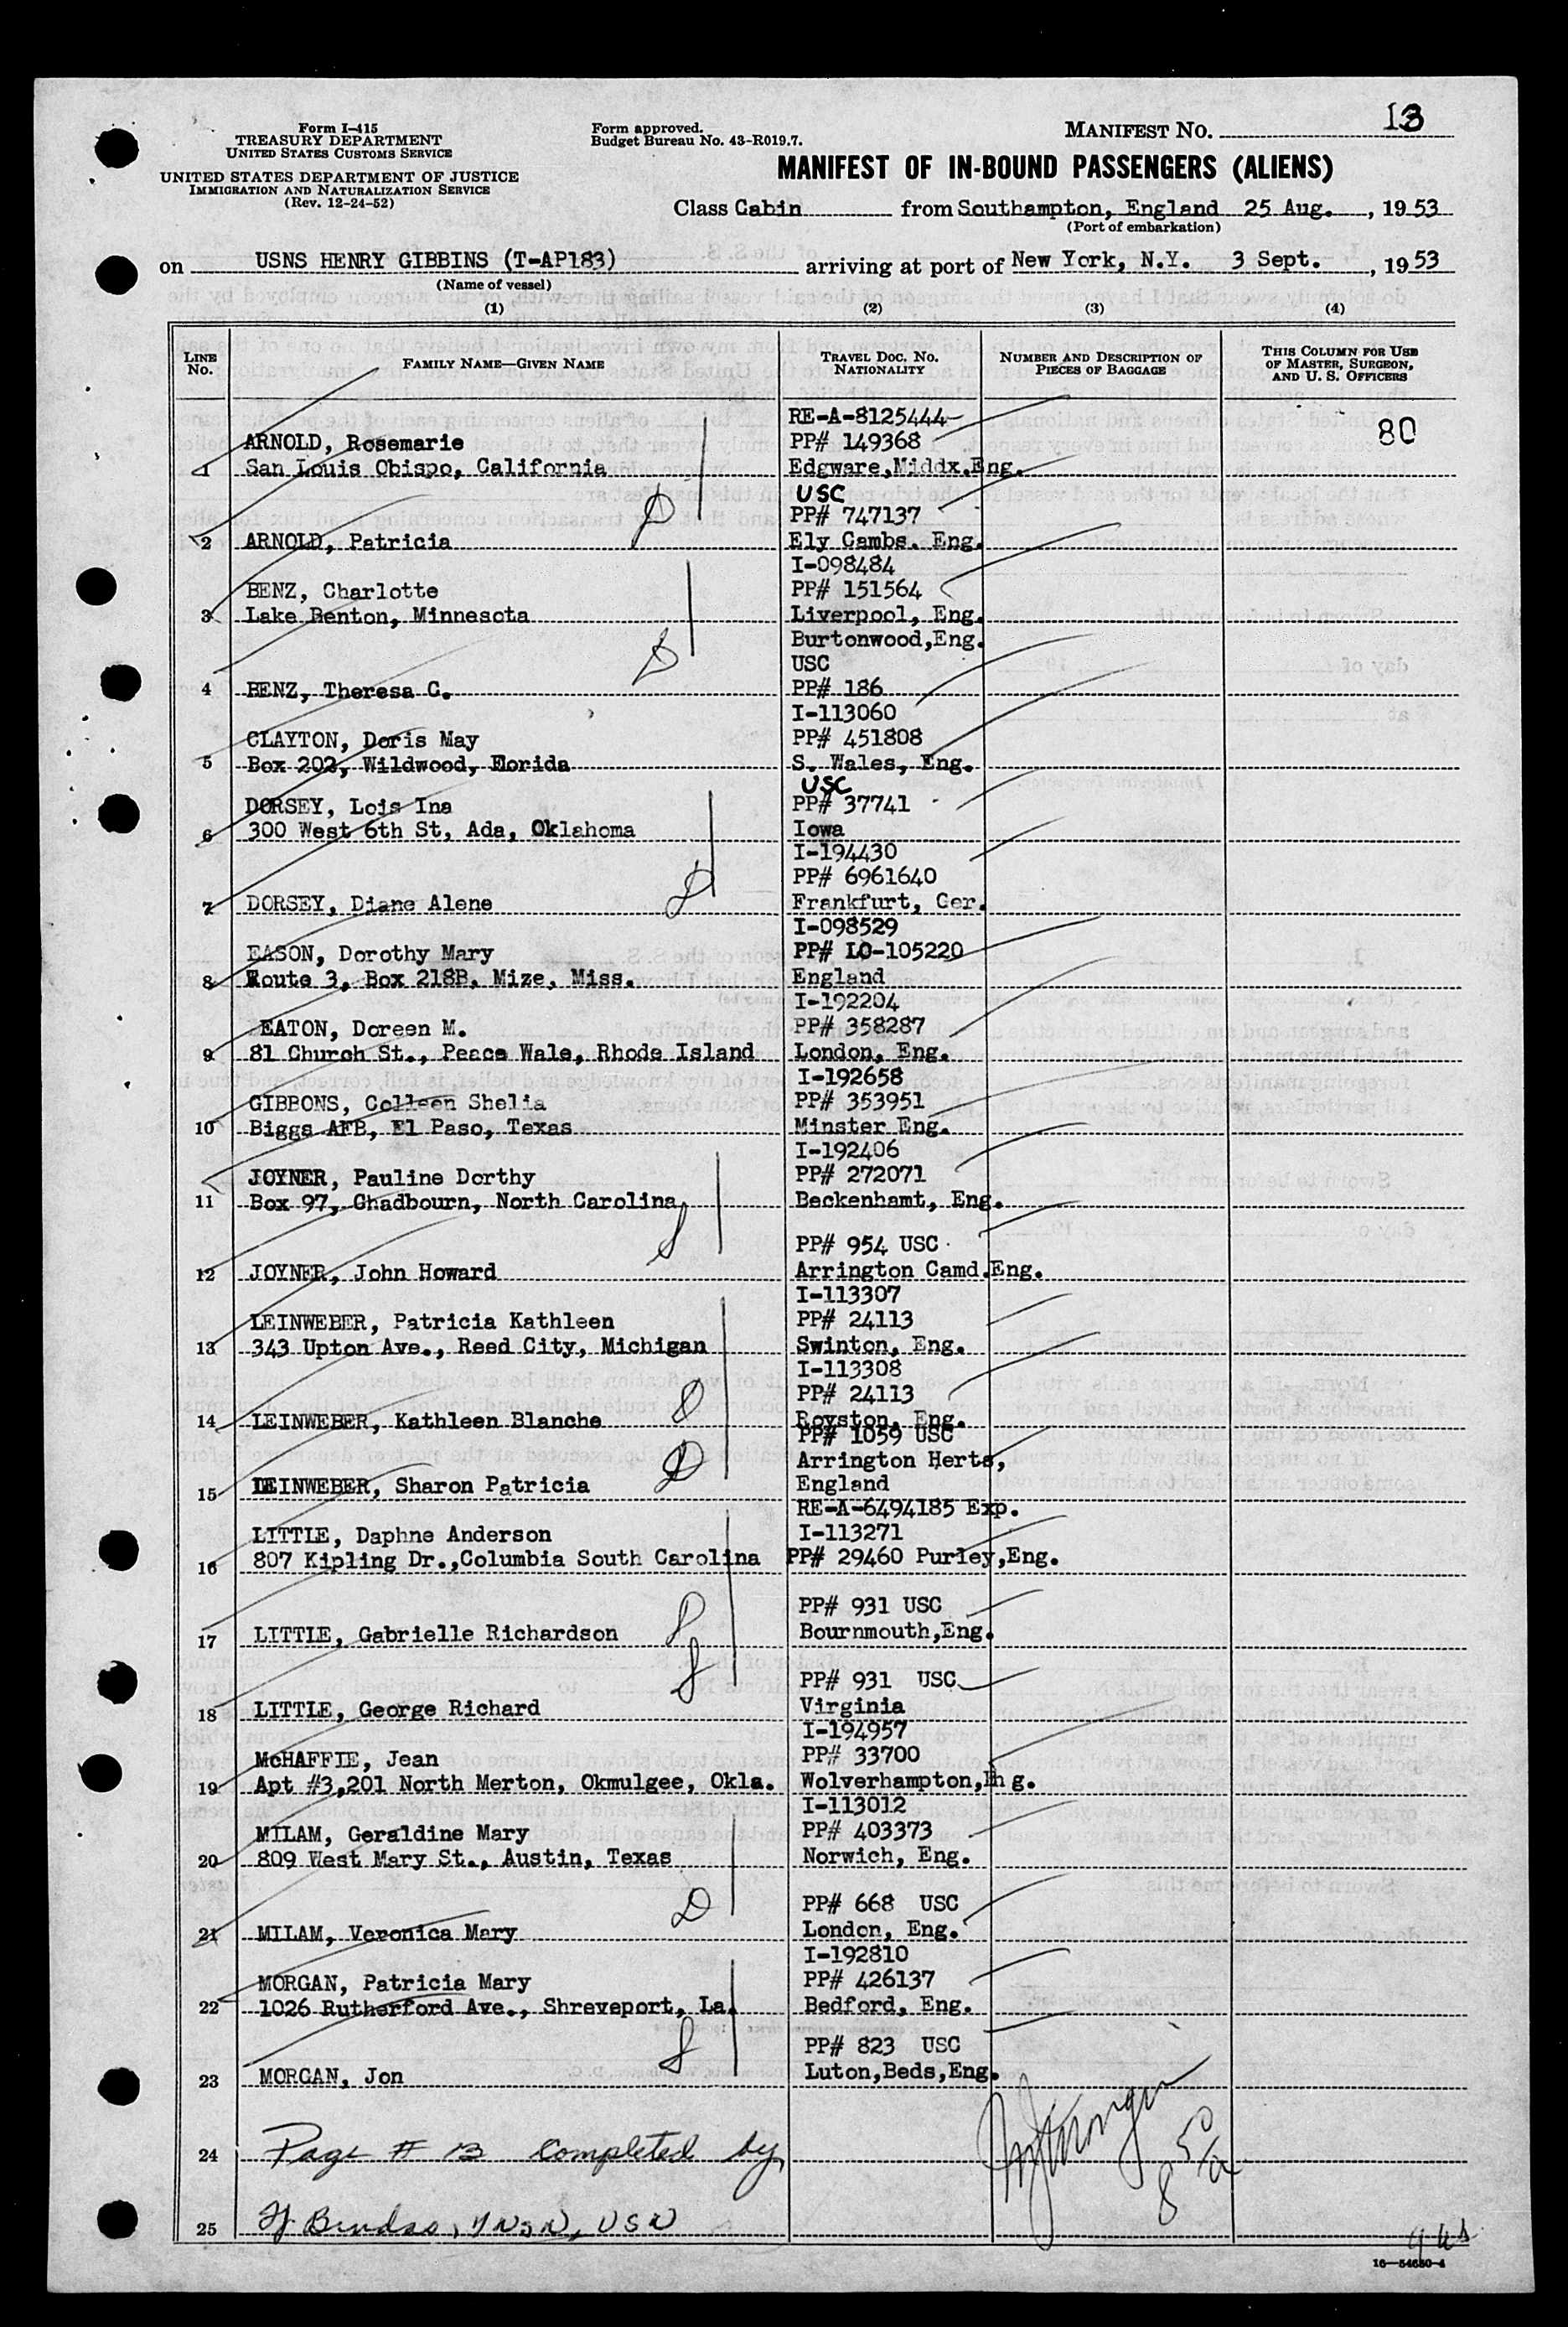 Form I-415
TREASURY DEPARTMENT
UNITED STATES CUSTOMS SERVICE
UNITED STATES DEPARTMENT OF JUSTICE
IMMIGRATION AND NATURALIZATION SERVICE
(Rev. 12-24-52)
Form approved.
Budget Bureau No. 43-R019.7.
MANIFEST NO. 13
MANIFEST OF IN-BOUND PASSENGERS (ALIENS)
Class Cabin from Southampton, England 25 Aug., 1953
(Port of embarkation)
on USNS HENRY GIBBINS (T-AP183) arriving at port of New York, N.Y. 3 Sept., 1953
(Name of vessel)
(1) (2) (3) (4)
LINE No. FAMILY NAME—GIVEN NAME TRAVEL DOC. NO. NATIONALITY NUMBER AND DESCRIPTION OF PIECES OF BAGGAGE THIS COLUMN FOR USE OF MASTER, SURGEON, AND U. S. OFFICERS
RE-A-8125444
80
ARNOLD, Rosemarie PP# 149368
1 San Louis Obispo, California Edgware,Middx.Eng.
USC
PP# 747137
2 ARNOLD, Patricia Ely Cambs. Eng.
I-098484
BENZ, Charlotte PP# 151564
3 Lake Benton, Minnesota Liverpool, Eng.
Burtonwood,Eng.
USC
4 BENZ, Theresa C. PP# 186
I-113060
CLAYTON, Doris May PP# 451808
5 Box 202, Wildwood, Florida S. Wales, Eng.
USC
DORSEY, Lois Ina PP# 37741
6 300 West 6th St, Ada, Oklahoma Iowa
I-194430
PP# 6961640
7 DORSEY, Diane Alene Frankfurt, Ger.
I-098529
EASON, Dorothy Mary PP# LO-105220
8 Route 3, Box 218B, Mize, Miss. England
I-192204
EATON, Doreen M. PP# 358287
9 81 Church St., Peace Wale, Rhode Island London, Eng.
I-192658
GIBBONS, Colleen Shelia PP# 353951
10 Biggs AFB, El Paso, Texas Minster Eng.
I-192406
JOYNER, Pauline Dorthy PP# 272071
11 Box 97, Chadbourn, North Carolina Beckenhamt, Eng.
PP# 954 USC
12 JOYNER, John Howard Arrington Camd.Eng.
I-113307
LEINWEBER, Patricia Kathleen PP# 24113
13 343 Upton Ave., Reed City, Michigan Swinton, Eng.
I-113308
PP# 24113
14 LEINWEBER, Kathleen Blanche Royston, Eng.
PP# 1059 USC
Arrington Herts,
15 LEINWEBER, Sharon Patricia England
RE-A-6494185 Exp.
LITTLE, Daphne Anderson I-113271
16 807 Kipling Dr.,Columbia South Carolina PP# 29460 Purley,Eng.
PP# 931 USC
17 LITTLE, Gabrielle Richardson Bournmouth,Eng.
PP# 931 USC
18 LITTLE, George Richard Virginia
I-194957
McHAFFIE, Jean PP# 33700
19 Apt #3,201 North Merton, Okmulgee, Okla. Wolverhampton,Eng.
I-113012
MILAM, Geraldine Mary PP# 403373
20 809 West Mary St., Austin, Texas Norwich, Eng.
PP# 668 USC
21 MILAM, Veronica Mary London, Eng.
I-192810
MORGAN, Patricia Mary PP# 426137
22 1026 Rutherford Ave., Shreveport, La. Bedford, Eng.
PP# 823 USC
23 MORGAN, Jon Luton,Beds,Eng.
24 Page # 13 completed by
25 USN
16—54630-4